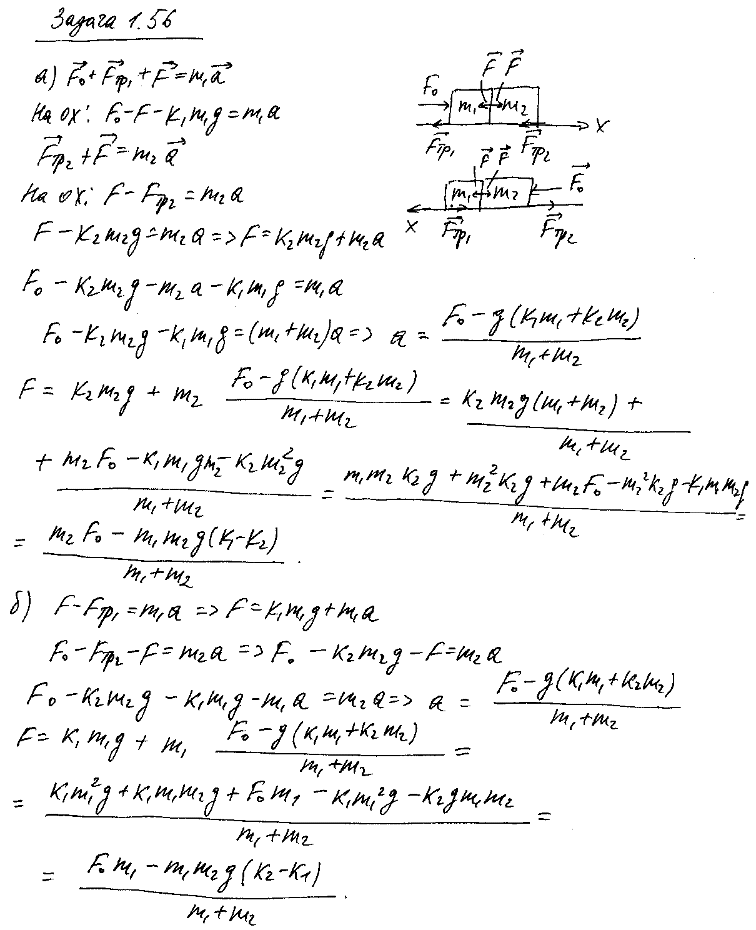 Задача 1.56
а) F⃗₀ + F⃗тр₁ + F⃗ = m₁a⃗
На ох: F₀ - F - k₁m₁g = m₁a
F⃗тр₂ + F⃗ = m₂a⃗
На ох: F - Fтр₂ = m₂a
F - k₂m₂g = m₂a => F = k₂m₂g + m₂a
F₀ - k₂m₂g - m₂a - k₁m₁g = m₁a
F₀ - k₂m₂g - k₁m₁g = (m₁+m₂)a => a = (F₀ - g(k₁m₁+k₂m₂))/(m₁+m₂)
F = k₂m₂g + m₂ (F₀ - g(k₁m₁+k₂m₂))/(m₁+m₂) = (k₂m₂g(m₁+m₂) +)/(m₁+m₂)
(+ m₂F₀ - k₁m₁gm₂ - k₂m₂²g)/(m₁+m₂) = (m₁m₂k₂g + m₂²k₂g + m₂F₀ - m₂²k₂g - k₁m₁m₂g)/(m₁+m₂) =
= (m₂F₀ - m₁m₂g(k₁-k₂))/(m₁+m₂).
б) F - Fтр₁ = m₁a => F = k₁m₁g + m₁a
F₀ - Fтр₂ - F = m₂a => F₀ - k₂m₂g - F = m₂a
F₀ - k₂m₂g - k₁m₁g - m₁a = m₂a => a = (F₀ - g(k₁m₁+k₂m₂))/(m₁+m₂)
F = k₁m₁g + m₁ (F₀ - g(k₁m₁+k₂m₂))/(m₁+m₂) =
= (k₁m₁²g + k₁m₁m₂g + F₀m₁ - k₁m₁²g - k₂gm₁m₂)/(m₁+m₂) =
= (F₀m₁ - m₁m₂g(k₂-k₁))/(m₁+m₂).
F⃗ F⃗
F₀ m₁ m₂
F⃗тр₁ F⃗тр₂ X
F⃗ F⃗
m₁ m₂ F⃗₀
X F⃗тр₁ F⃗тр₂